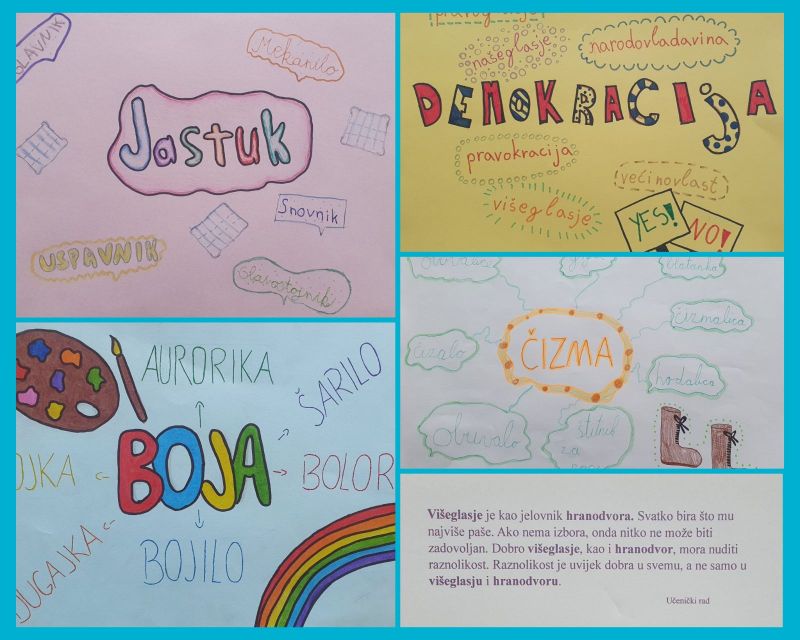 GLAVNIK
Mekanilo
Jastuk
Snovnik
USPAVNIK
Glavostojnik
našeglasje
narodovladavina
DEMOKRACIJA
pravokracija
većinovlast
višeglasje
YES!
NO!
ČIZMA
čizmalica
čizalo
hodalica
obuvalo
štitnik
za
AURORIKA
ŠARILO
BOJA
OJKA
BOLOR
DUGAJKA
BOJILO
Višeglasje je kao jelovnik hranodvora. Svatko bira što mu
najviše paše. Ako nema izbora, onda nitko ne može biti
zadovoljan. Dobro višeglasje, kao i hranodvor, mora nuditi
raznolikost. Raznolikost je uvijek dobra u svemu, a ne samo u
višeglasju i hranodvoru.
Učenički rad